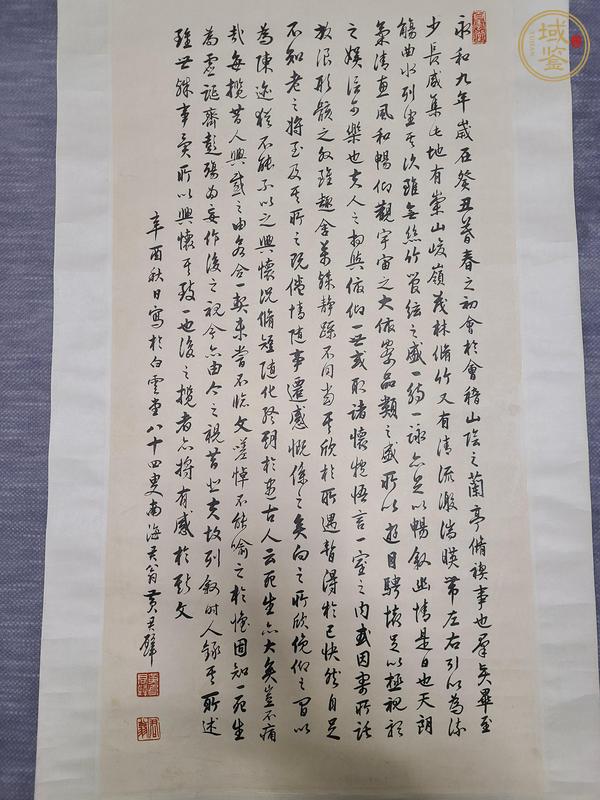 永和九年歲在癸丑暮春之初會於會稽山陰之蘭亭脩稧事也羣賢畢至
少長咸集此地有崇山峻嶺茂林脩竹又有清流激湍暎帶左右引以為流
觴曲水列坐其次雖無絲竹管絃之盛一觴一詠亦足以暢敘幽情是日也天朗
氣清惠風和暢仰觀宇宙之大俯察品類之盛所以遊目騁懷足以極視聽
之娛信可樂也夫人之相與俯仰一世或取諸懷抱悟言一室之內或因寄所託
放浪形骸之外雖趣舍萬殊靜躁不同當其欣於所遇暫得於己快然自足
不知老之將至及其所之既倦情隨事遷感慨係之矣向之所欣俛仰之間以
為陳迹猶不能不以之興懷況脩短隨化終期於盡古人云死生亦大矣豈不痛
哉每攬昔人興感之由若合一契未嘗不臨文嗟悼不能喻之於懷固知一死生
為虛誕齊彭殤為妄作後之視今亦由今之視昔悲夫故列敘時人錄其所述
雖世殊事異所以興懷其致一也後之攬者亦將有感於斯文
辛酉秋日寫於白雲堂八十四叟南海君翁黃君璧
域鑒